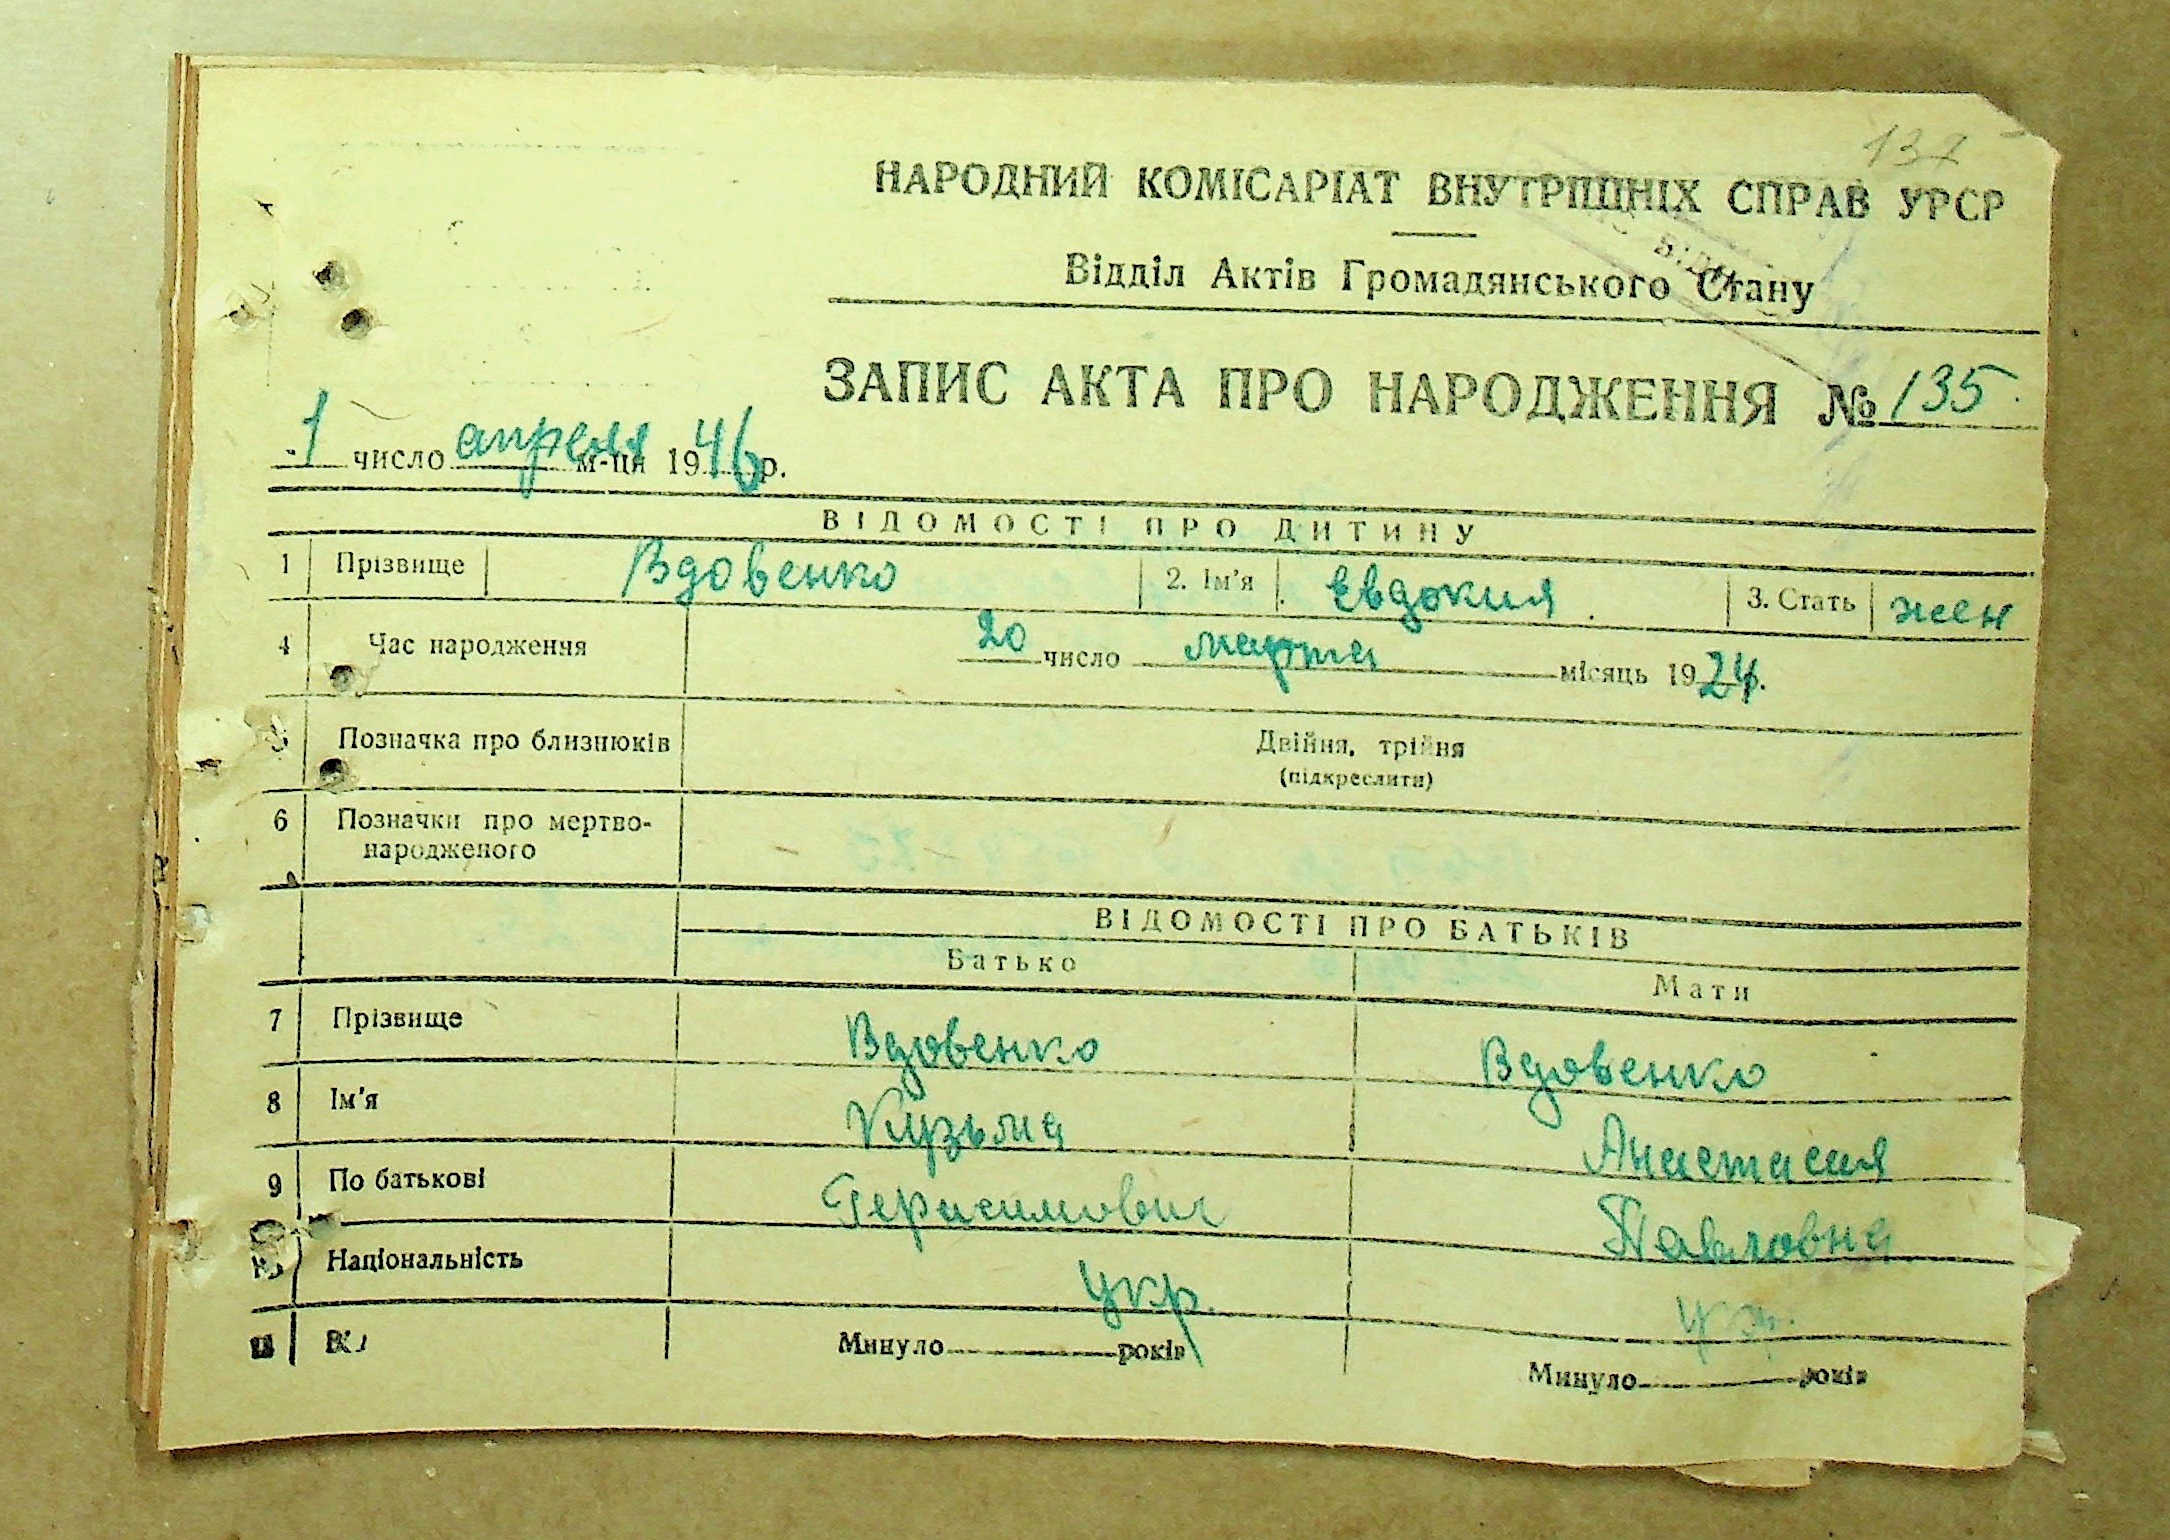 НАРОДНИЙ КОМІСАРІАТ ВНУТРІШНІХ СПРАВ УРСР
Відділ Актів Громадянського Стану
ЗАПИС АКТА ПРО НАРОДЖЕННЯ № 135.
1 число апреля м-ця 1946 р.
ВІДОМОСТІ ПРО ДИТИНУ
1 Прізвище Вдовенко 2. Ім'я Евдокия 3. Стать жен
4 Час народження 20 число марта місяць 1924.
5 Позначка про близнюків Двійня, трійня
(підкреслити)
6 Позначки про мертво-
народженого
ВІДОМОСТІ ПРО БАТЬКІВ
Батько Мати
7 Прізвище Вдовенко Вдовенко
8 Ім'я Кузьма Анастасия
9 По батькові Герасимович Павловна
Національність укр. укр.
Минуло років Минуло років